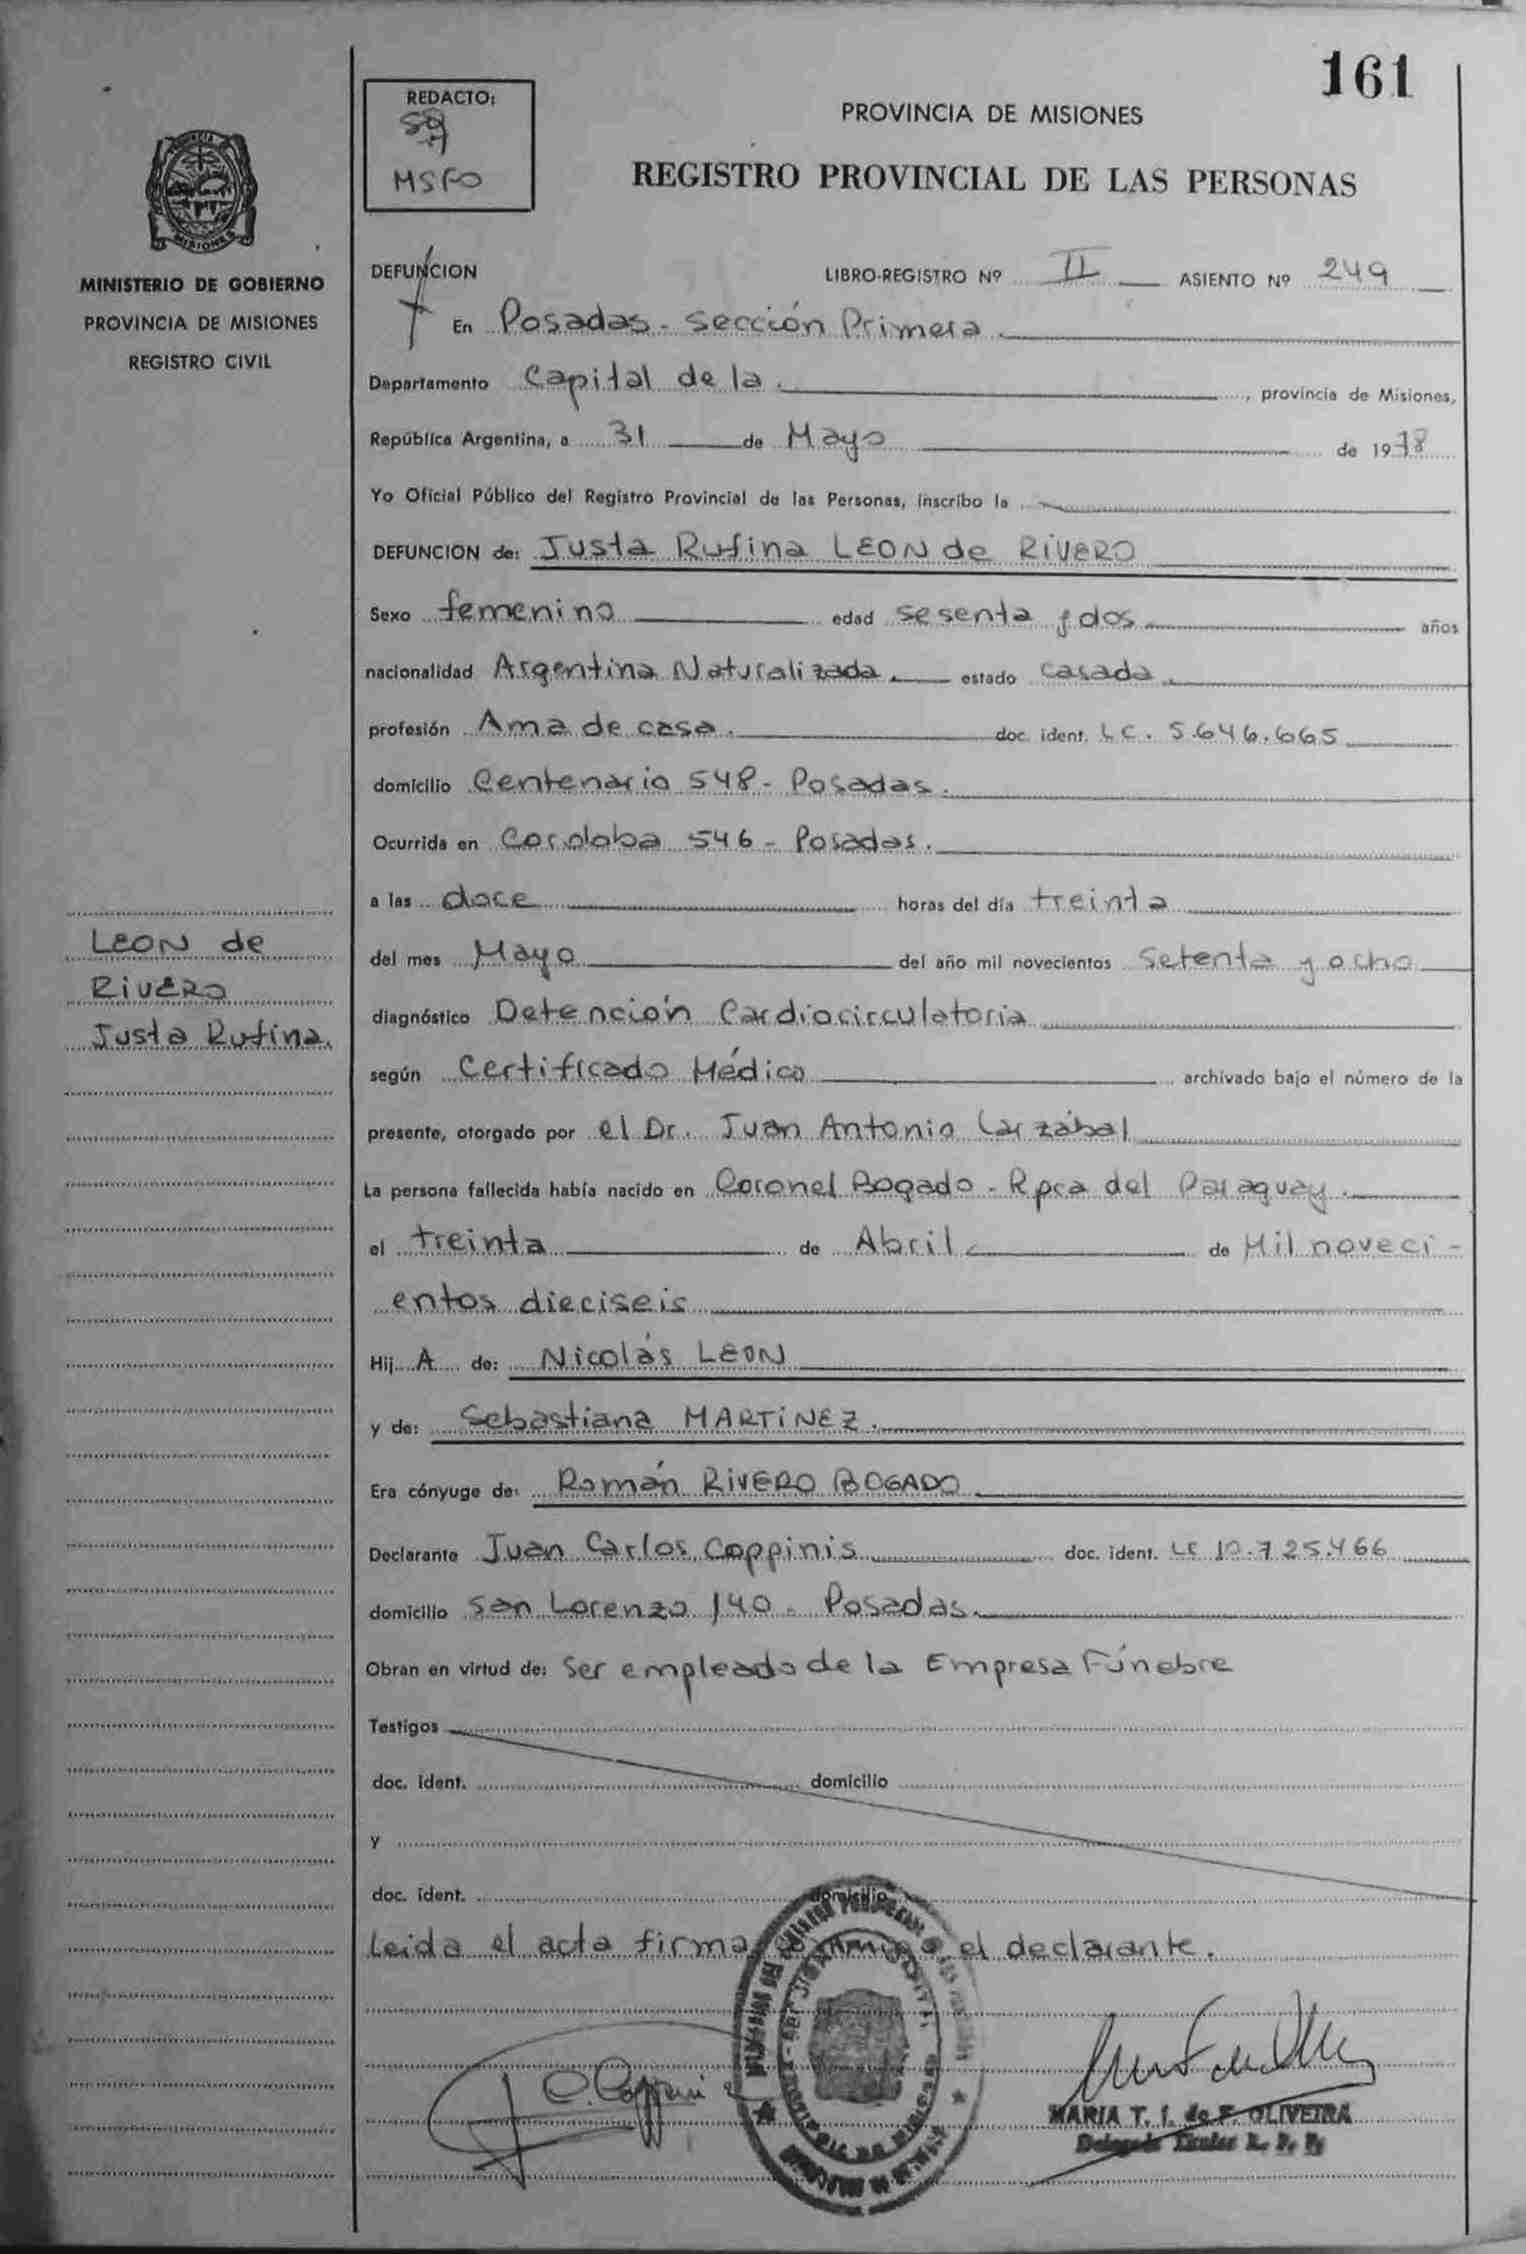 161
REDACTO:
MINISTERIO DE GOBIERNO
PROVINCIA DE MISIONES
REGISTRO CIVIL
PROVINCIA DE MISIONES
REGISTRO PROVINCIAL DE LAS PERSONAS
DEFUNCION LIBRO-REGISTRO Nº II ASIENTO Nº 249
En Posadas - Sección Primera
Departamento Capital de la , provincia de Misiones,
República Argentina, a 31 de Mayo de 1978
Yo Oficial Público del Registro Provincial de las Personas, inscribo la
DEFUNCION de: Justa Rufina LEON de RIVERO
Sexo femenino edad sesenta y dos años
nacionalidad Argentina Naturalizada. estado casada.
profesión Ama de casa. doc. ident. LC. 5.646.665
domicilio Centenario 548 - Posadas.
Ocurrida en Cordoba 546 - Posadas.
a las doce horas del día treinta
del mes Mayo del año mil novecientos setenta y ocho
diagnóstico Detención Cardiocirculatoria
según Certificado Médico archivado bajo el número de la
presente, otorgado por el Dr. Juan Antonio Larzábal
La persona fallecida había nacido en Coronel Bogado - Rpca del Paraguay.
el treinta de Abril de Mil noveci-
entos dieciseis
Hij A de: Nicolás LEON
y de: Sebastiana MARTINEZ.
Era cónyuge de: Román RIVERO BOGADO
Declarante Juan Carlos Coppinis doc. ident. LE 10.725.466
domicilio San Lorenzo 140 - Posadas.
Obran en virtud de: Ser empleado de la Empresa Fúnebre
Testigos
doc. ident. domicilio
y
doc. ident. domicilio
Leida el acta firma conmigo el declarante.
MARIA T. I. de F. OLIVEIRA
Delegada Titular R. P. P.
LEON de
RIVERO
Justa Rufina.